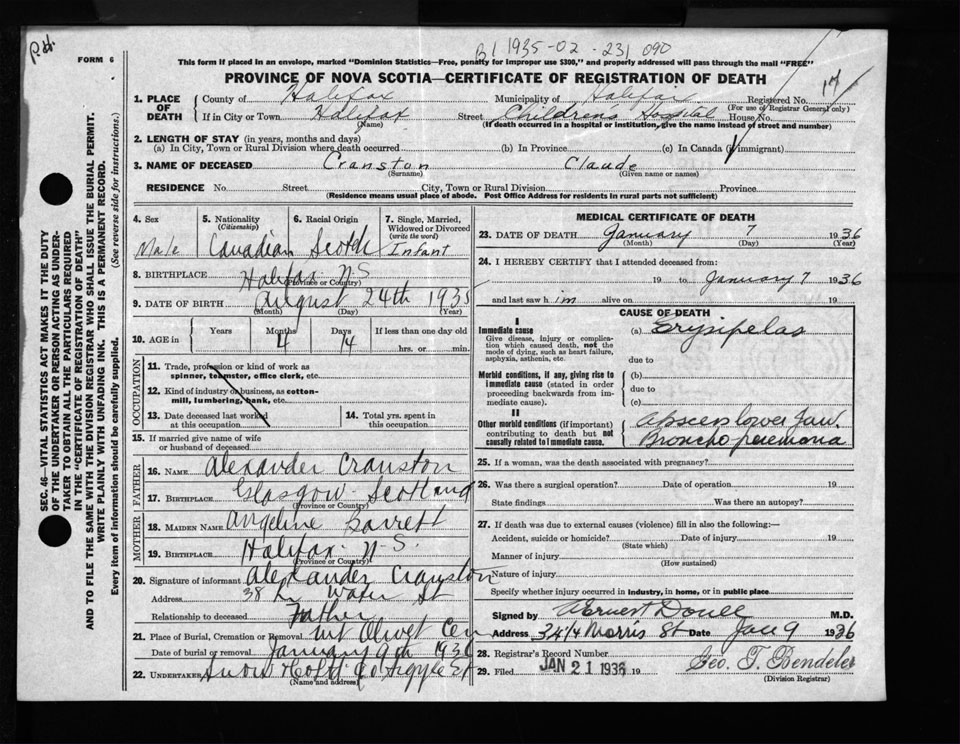 P.H.
B1 1935-02-231090
17
FORM 6
This form if placed in an envelope, marked "Dominion Statistics—Free, penalty for improper use $300," and properly addressed will pass through the mail "FREE"
PROVINCE OF NOVA SCOTIA—CERTIFICATE OF REGISTRATION OF DEATH
SEC. 46—VITAL STATISTICS ACT MAKES IT THE DUTY
OF THE UNDERTAKER OR PERSON ACTING AS UNDER-
TAKER TO OBTAIN ALL THE PARTICULARS REQUIRED
IN THE "CERTIFICATE OF REGISTRATION OF DEATH"
AND TO FILE THE SAME WITH THE DIVISION REGISTRAR WHO SHALL ISSUE THE BURIAL PERMIT.
WRITE PLAINLY WITH UNFADING INK. THIS IS A PERMANENT RECORD.
Every item of information should be carefully supplied. (See reverse side for instructions.)
1. PLACE OF DEATH
County of Halifax Municipality of Halifax Registered No.
(For use of Registrar General only)
If in City or Town Halifax Street Children's Hospital House No.
(Name) (If death occurred in a hospital or institution, give the name instead of street and number)
2. LENGTH OF STAY (in years, months and days)
(a) In City, Town or Rural Division where death occurred (b) In Province (c) In Canada (if immigrant)
3. NAME OF DECEASED Cranston Claude
(Surname) (Given name or names)
RESIDENCE No. Street City, Town or Rural Division Province
(Residence means usual place of abode. Post Office Address for residents in rural parts not sufficient)
4. Sex
Male
5. Nationality
(Citizenship)
Canadian
6. Racial Origin
Scotch
7. Single, Married,
Widowed or Divorced
(write the word)
Infant
8. BIRTHPLACE Halifax N S
(Province or Country)
9. DATE OF BIRTH August 24th 1935
(Month) (Day) (Year)
10. AGE in Years Months Days If less than one day old
4 14 hrs. or min.
OCCUPATION
11. Trade, profession or kind of work as
spinner, teamster, office clerk, etc.
12. Kind of industry or business, as cotton-
mill, lumbering, bank, etc.
13. Date deceased last worked
at this occupation
14. Total yrs. spent in
this occupation
15. If married give name of wife
or husband of deceased
FATHER
16. NAME Alexander Cranston
17. BIRTHPLACE Glasgow Scotland
(Province or Country)
MOTHER
18. MAIDEN NAME Angeline Barrett
19. BIRTHPLACE Halifax N-S.
(Province or Country)
20. Signature of informant Alexander Cranston
Address 38 Water St
Relationship to deceased Father
21. Place of Burial, Cremation or Removal Mt Olivet Cem
Date of burial or removal January 9th 1936
22. UNDERTAKER Snow & Co Ltd Argyle St
(Name and address)
MEDICAL CERTIFICATE OF DEATH
23. DATE OF DEATH January 7 1936
(Month) (Day) (Year)
24. I HEREBY CERTIFY that I attended deceased from:
19 to January 7 1936
and last saw him alive on 19
CAUSE OF DEATH
I
Immediate cause
Give disease, injury or complica-
tion which caused death, not the
mode of dying, such as heart failure,
asphyxia, asthenia, etc.
(a) Erysipelas
due to
Morbid conditions, if any, giving rise to
immediate cause (stated in order
proceeding backwards from im-
mediate cause).
(b)
due to
(c)
II
Other morbid conditions (if important)
contributing to death but not
causally related to immediate cause.
Abscess lower Jaw.
Bronchopneumonia
25. If a woman, was the death associated with pregnancy?
26. Was there a surgical operation? Date of operation 19
State findings Was there an autopsy?
27. If death was due to external causes (violence) fill in also the following:—
Accident, suicide or homicide? Date of injury 19
(State which)
Manner of injury
(How sustained)
Nature of injury
Specify whether injury occurred in Industry, in home, or in public place
Signed by Ernest Doull M.D.
Address 34 1/4 Morris St Date Jan 9 1936
28. Registrar's Record Number
29. Filed JAN 21 1936 19 Geo. T. Bendeler
(Division Registrar)